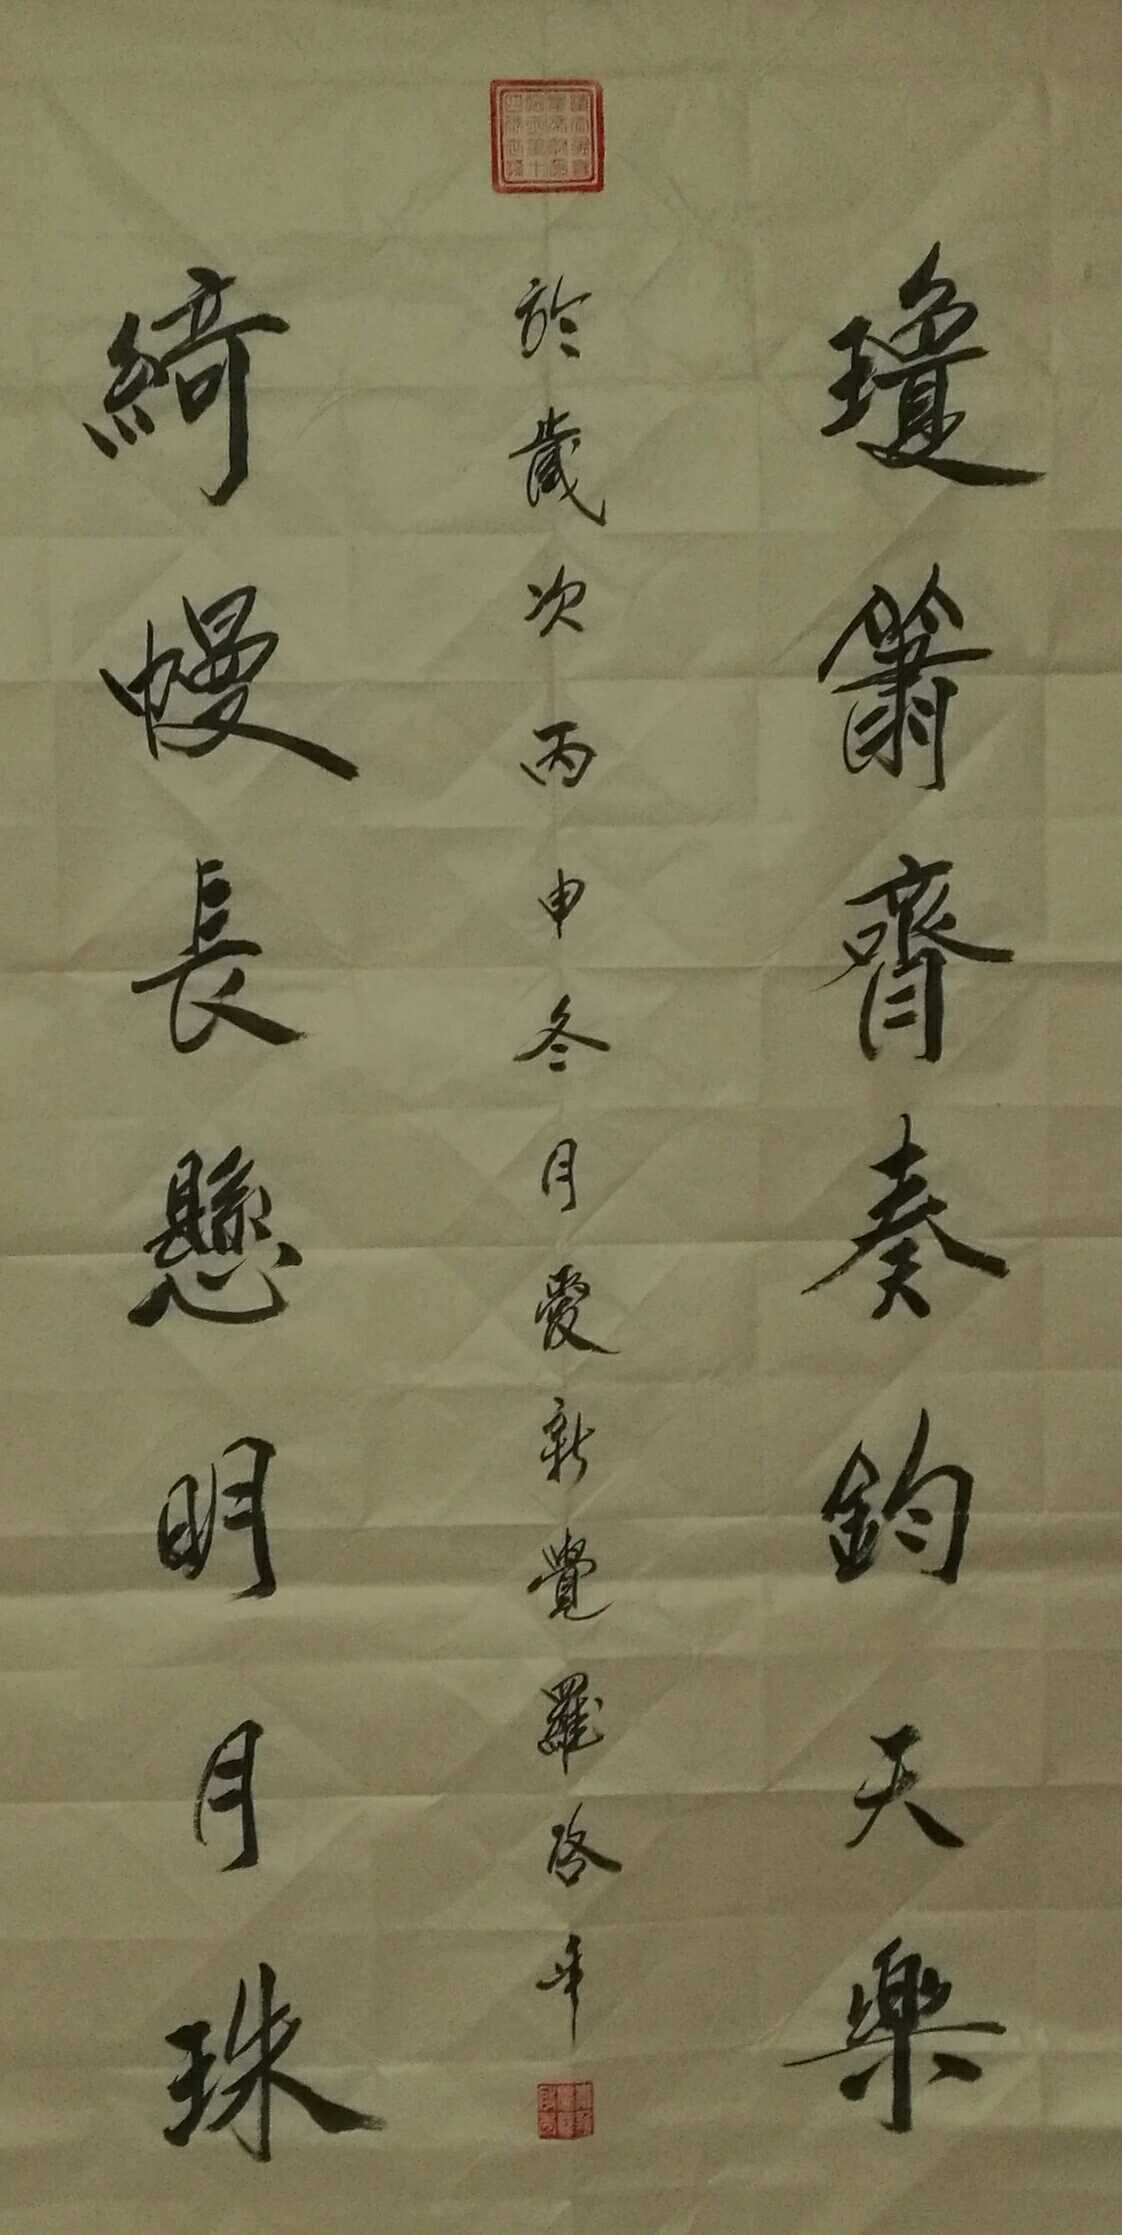 瓊簫齊奏鈞天樂
於歲次丙申冬月愛新覺羅啓年
綺幔長懸明月珠